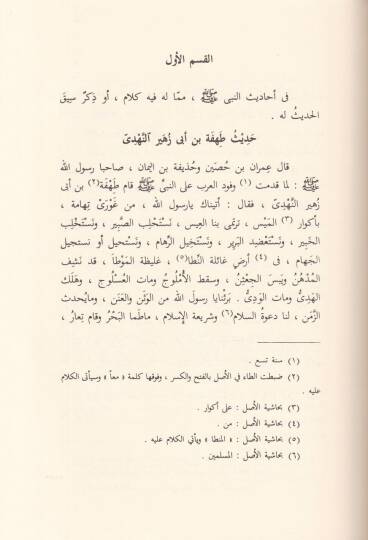 القسم الأول
فى أحاديث النبى ﷺ ، ممّا له فيه كلام ، أو ذِكرٌ سيقَ
الحديثُ له .
حَديْثُ طِهفَة بن أبى زُهَير النَّهْدِىّ
قال عِمران بن حُصَين وحُذيفة بن اليمان ، صاحبا رسول الله
ﷺ : لما قدمت (١) وفود العرب على النبىّ ﷺ قام طِهْفَة(٢) بن أبى
زُهير النَّهْدِىّ ، فقال : أتيناك يارسول الله ، من غَوْرَىْ تِهامة ،
بأكوار (٣) المَيْس ، ترتمى بنا العِيس ، نَسْتَحْلِب الصَّبِير ، ونَسْتَخْلِب
الخَبِير ، ونَسْتَعْضِيد البَرِير ، ونَسْتَخِيل الرِّهام ، ونَسْتَحيل أو نستجيل
الجَهام ، فى (٤) أرضٍ غائلة النِّطا(٥) ، غليظة المَوْطأ ، قد نَشِف
المُدْهُنُ ويَبِسَ الجِعْثِنُ ، وسقط الأُمْلُوج ومات العُسْلُوج ، وهَلَك
الهَدِىُّ ومات الوَدِىُّ . بَرِئنايا رسولَ الله من الوَثَن والعَنَن ، ومايُحدث
الزَّمَن ، لنا دعوةُ السلام(٦) وشريعة الإسلام ، ماطما البَحْرُ وقام تِعارُ ،
(١) سنة تسع .
(٢) ضبطت الطاء فى الأصل بالفتح والكسر ، وفوقها كلمة « معاً » وسيأتى الكلام
عليه .
(٣) بحاشية الأصل : على أكوار .
(٤) بحاشية الأصل : من .
(٥) بحاشية الأصل : « المنطا » ويأتي الكلام عليه .
(٦) بحاشية الأصل : المسلمين .